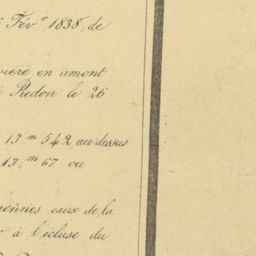 Fév.er 1838, de
en amont
Redon le 26
13.m 542 au dessus
13.m 67 ou
eaux de la
à l'écluse du